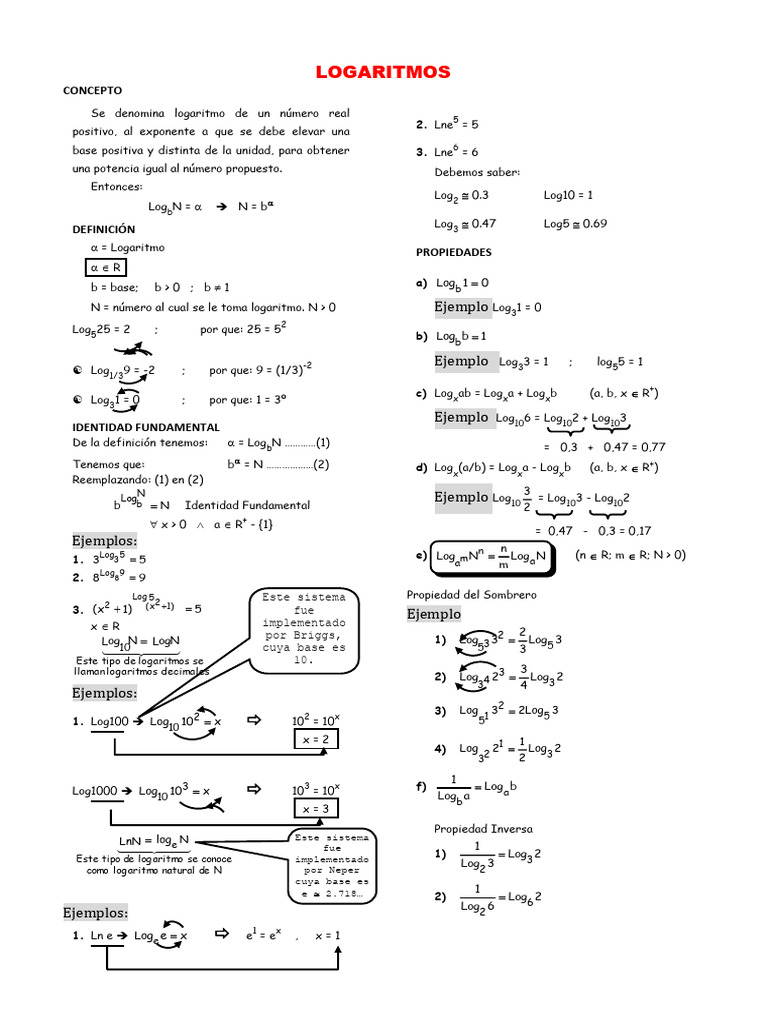 LOGARITMOS
CONCEPTO
Se denomina logaritmo de un número real
positivo, al exponente a que se debe elevar una
base positiva y distinta de la unidad, para obtener
una potencia igual al número propuesto.
Entonces:
Log_b N = α ➔ N = b^α
DEFINICIÓN
α = Logaritmo
α ∈ R
b = base; b > 0 ; b ≠ 1
N = número al cual se le toma logaritmo. N > 0
Log_5 25 = 2 ; por que: 25 = 5^2
☯ Log_1/3 9 = -2 ; por que: 9 = (1/3)^-2
☯ Log_3 1 = 0 ; por que: 1 = 3º
IDENTIDAD FUNDAMENTAL
De la definición tenemos: α = Log_b N …………(1)
Tenemos que: b^α = N ………………(2)
Reemplazando: (1) en (2)
b^(Log_b N) = N Identidad Fundamental
∀ x > 0 ∧ a ∈ R^+ - {1}
Ejemplos:
1. 3^(Log_3 5) = 5
2. 8^(Log_8 9) = 9
3. (x^2 + 1)^(Log_(x^2+1) 5) = 5
x ∈ R
Log_10 N = LogN
Este tipo de logaritmos se
llamanlogaritmos decimales
Este sistema
fue
implementado
por Briggs,
cuya base es
10.
Ejemplos:
1. Log100 ➔ Log_10 10^2 = x ⇨ 10^2 = 10^x
x = 2
Log1000 ➔ Log_10 10^3 = x ⇨ 10^3 = 10^x
x = 3
LnN = log_e N
Este tipo de logaritmo se conoce
como logaritmo natural de N
Este sistema
fue
implementado
por Neper
cuya base es
e ≅ 2.718…
Ejemplos:
1. Ln e ➔ Log_e e = x ⇨ e^1 = e^x , x = 1
2. Lne^5 = 5
3. Lne^6 = 6
Debemos saber:
Log_2 ≅ 0.3 Log10 = 1
Log_3 ≅ 0.47 Log5 ≅ 0.69
PROPIEDADES
a) Log_b 1 = 0
Ejemplo Log_3 1 = 0
b) Log_b b = 1
Ejemplo Log_3 3 = 1 ; log_5 5 = 1
c) Log_x ab = Log_x a + Log_x b (a, b, x ∈ R^+)
Ejemplo Log_10 6 = Log_10 2 + Log_10 3
= 0,3 + 0,47 = 0,77
d) Log_x (a/b) = Log_x a - Log_x b (a, b, x ∈ R^+)
Ejemplo Log_10 3/2 = Log_10 3 - Log_10 2
= 0,47 - 0,3 = 0,17
e) Log_(a^m) N^n = n/m Log_a N (n ∈ R; m ∈ R; N > 0)
Propiedad del Sombrero
Ejemplo
1) Log_(5^3) 3^2 = 2/3 Log_5 3
2) Log_(3^4) 2^3 = 3/4 Log_3 2
3) Log_(5^1) 3^2 = 2Log_5 3
4) Log_(3^2) 2^1 = 1/2 Log_3 2
f) 1/Log_b a = Log_a b
Propiedad Inversa
1) 1/Log_2 3 = Log_3 2
2) 1/Log_2 6 = Log_6 2